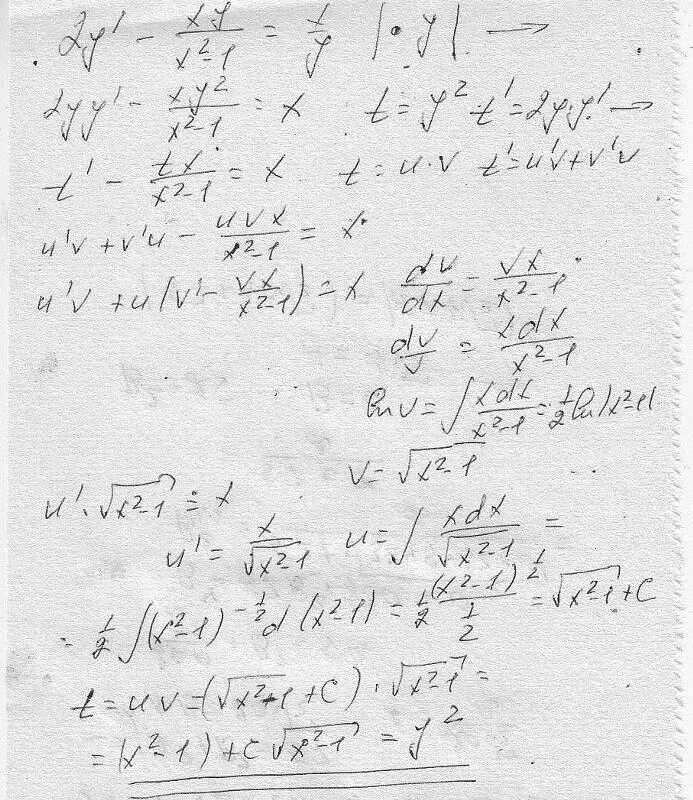 2y' - xy/(x²-1) = x/y |· y| →
2yy' - xy²/(x²-1) = x t = y² t' = 2y·y' →
t' - tx/(x²-1) = x t = u·v t' = u'v + v'u
u'v + v'u - uvx/(x²-1) = x
u'v + u(v' - vx/(x²-1)) = x dv/dx = vx/(x²-1)
dv/v = xdx/(x²-1)
ln v = ∫ xdx/(x²-1) = 1/2 ln|x²-1|
v = √(x²-1)
u'·√(x²-1) = x
u' = x/√(x²-1) u = ∫ xdx/√(x²-1) =
= 1/2 ∫(x²-1)^(-1/2) d(x²-1) = 1/2 (x²-1)^(1/2)/(1/2) = √(x²-1) + C
t = uv = (√(x²-1) + C)·√(x²-1) =
= (x²-1) + C√(x²-1) = y²